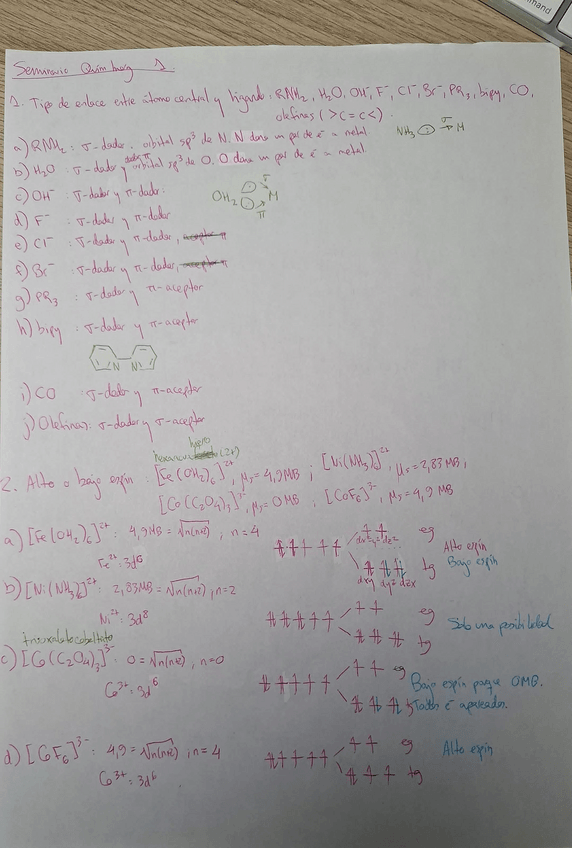 command
Seminario Quím Inorg 1.
1. Tipo de enlace entre átomo central y ligando: RNH₂, H₂O, OH⁻, F⁻, Cl⁻, Br⁻, PR₃, bipy, CO,
olefinas ( >C=C< ).
a) RNH₂: σ-dador. orbital sp³ de N. N dona un par de e⁻ a metal
NH₃ σ→ M
b) H₂O : σ-dador y dador π orbital sp³ de O. O dona un par de e⁻ a metal
c) OH⁻ : σ-dador y π-dador.
OH₂ σ M π
d) F⁻ : σ-dador y π-dador
e) Cl⁻ : σ-dador y π-dador, aceptor π
f) Br⁻ : σ-dador y π-dador, aceptor π
g) PR₃ : σ-dador y π-aceptor
h) bipy : σ-dador y π-aceptor
N N
i) CO : σ-dador y π-aceptor
j) Olefinas: σ-dador y π-aceptor
hierro
(2+)
2. Alto o bajo espín : [Fe(OH₂)₆]²⁺, μs = 4,9 MB ; [Ni(NH₃)₆]²⁺, μs = 2,83 MB,
[Co(C₂O₄)₃]³⁻, μs = 0 MB ; [CoF₆]³⁻, μs = 4,9 MB
a) [Fe(OH₂)₆]²⁺ : 4,9 MB = √n(n+2) , n = 4
Fe²⁺: 3d⁶
dx²-y² dz² eg
Alto espín
Bajo espín
dxy dyz dzx tg
b) [Ni(NH₃)₆]²⁺ : 2,83 MB = √n(n+2) , n=2
Ni²⁺: 3d⁸
eg
tg
Solo una posibilidad
trioxalatocobaltato
c) [Co(C₂O₄)₃]³⁻ : 0 = √n(n+2) , n=0
Co³⁺: 3d⁶
eg
tg
Bajo espín porque 0MB.
Todos é apareados.
d) [CoF₆]³⁻ : 4,9 = √n(n+2) , n = 4
Co³⁺ : 3d⁶
eg
tg
Alto espín